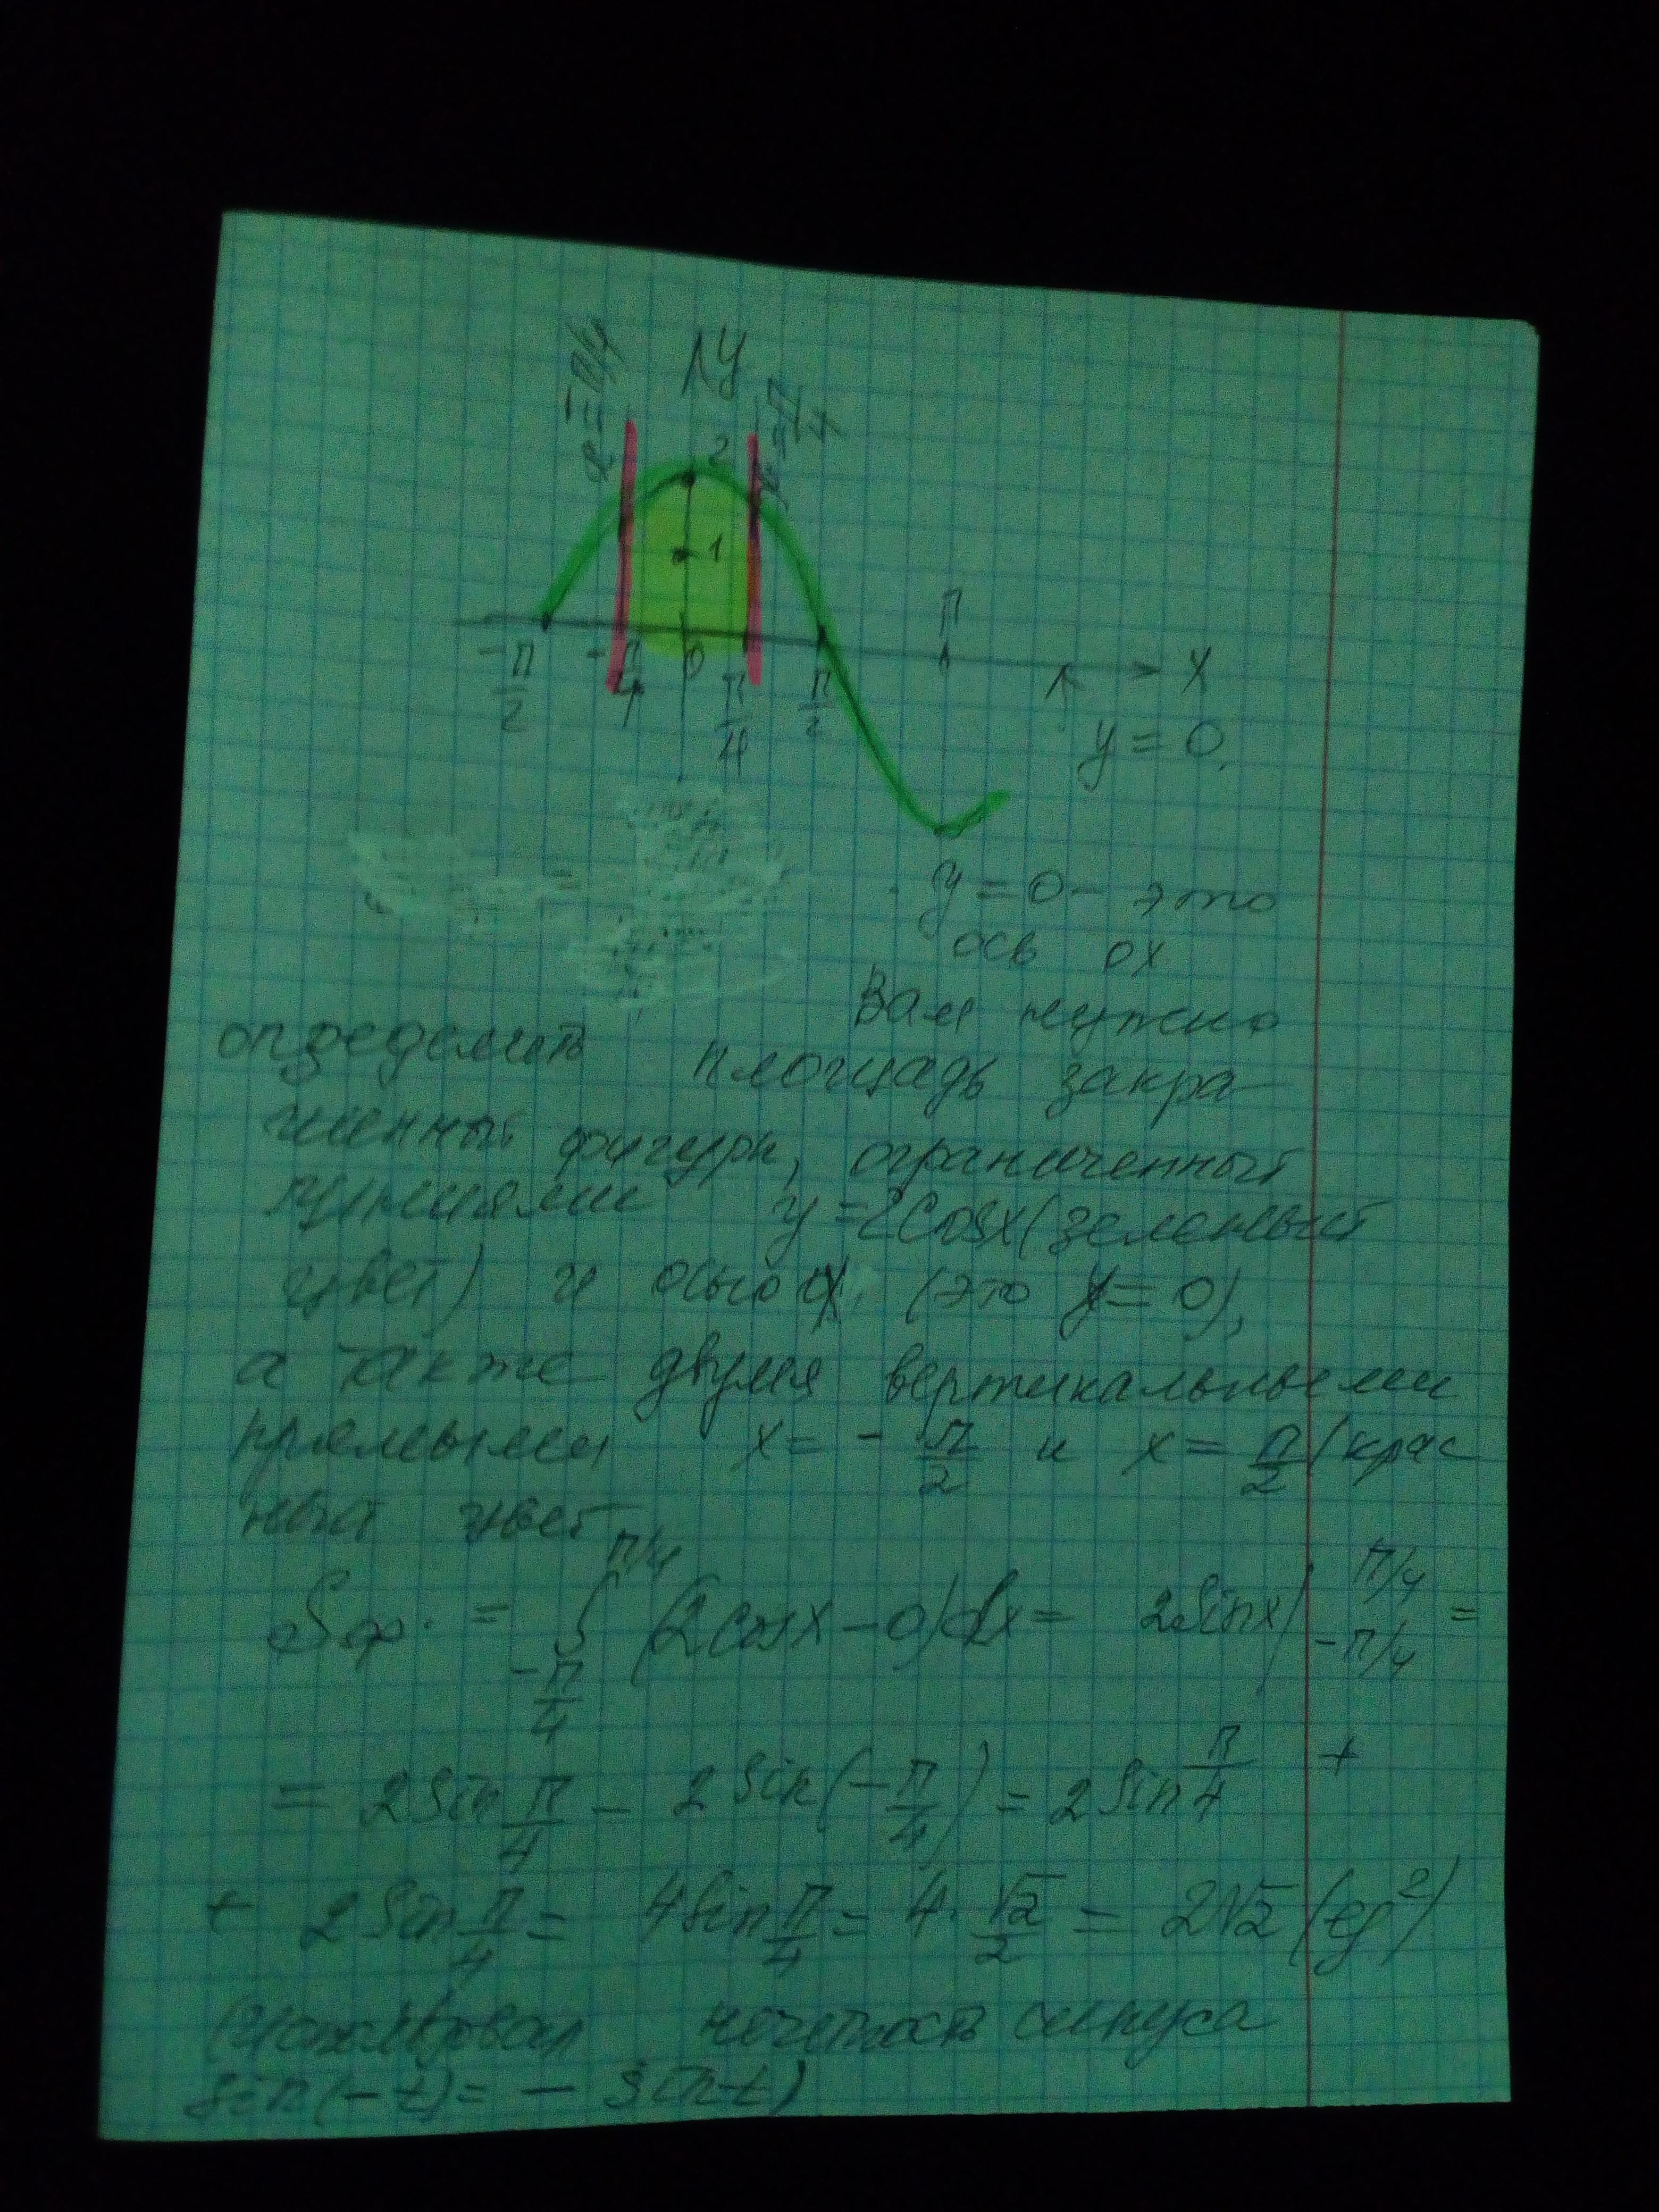 y
x = -π/4
x = π/4
2
1
π
-π/2
-π/4
0
π/4
π/2
x
y = 0.
y = 0 - это
ось ox
Вам нужно
определить площадь закра-
шенный фигуры, ограниченный
линиями y = 2cosx (зеленый
цвет) и осью OX (это y = 0),
а также двумя вертикальными
прямыми x = -π/2 и x = π/2 (крас
ный цвет
Sф. = ∫_{-π/4}^{π/4} (2cosx - 0)dx = 2sinx |_{-π/4}^{π/4} =
= 2sin π/4 - 2sin(-π/4) = 2sin π/4 +
+ 2sin π/4 = 4sin π/4 = 4·√2/2 = 2√2 (ед²)
(использовал нечетность синуса
sin(-t) = - sint)